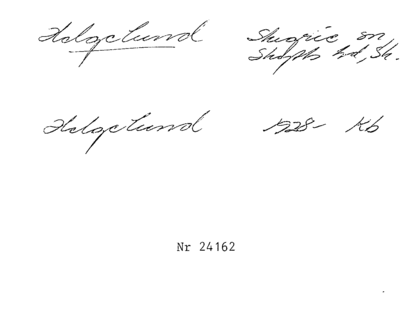 Helgelund Skegrie sn,
Skytts hd, Sk.
Helgelund 1928- Kb
Nr 24162